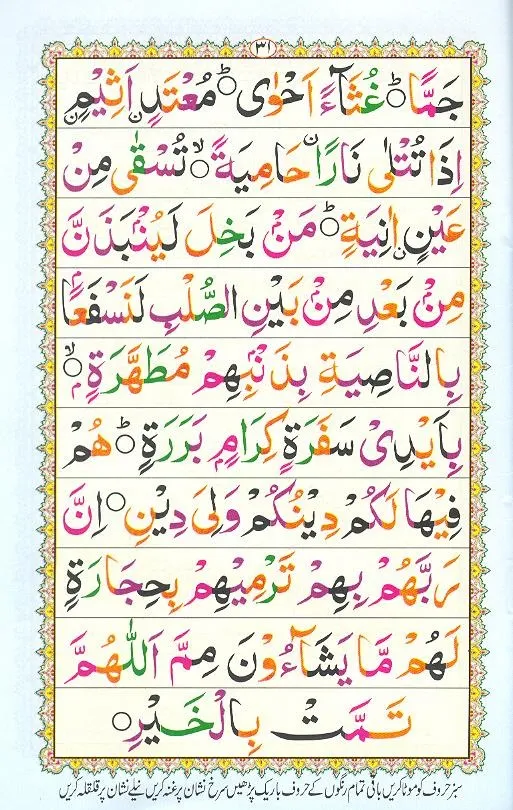 ۳۱
جَمًّا ۝ؕ غُثَآءً اَحْوٰى ۝ؕ مُعْتَدٍ اَثِيْمٍ
اِذَا تُتْلٰى نَارًا حَامِيَةً ۝ۙ تُسْقٰى مِنْ
عَيْنٍ اٰنِيَةٍ ۝ؕ مَنْۢ بَخِلَ لَيُنْۢبَذَنَّ
مِنْۢ بَعْدِ مِنْۢ بَيْنِ الصُّلْبِ لَنَسْفَعًاۢ
بِالنَّاصِيَةِ بِذَنْۢبِهِمْ مُطَهَّرَةٍۭ ۝ۙ
بِاَيْدِىْ سَفَرَةٍ كِرَامٍۭ بَرَرَةٍ ۝ؕ هُمْ
فِيْهَا لَكُمْ دِيْنُكُمْ وَلِىَ دِيْنِ ۝ اِنَّ
رَبَّهُمْ بِهِمْ تَرْمِيْهِمْ بِحِجَارَةٍ
لَهُمْ مَّا يَشَآءُوْنَ مِمَّ اَللّٰهُمَّ
تَمَّتْ بِالْخَيْرِ ۝
سبز حروف کو موٹا کریں باقی تمام رنگوں کے حروف باریک پڑھیں سرخ نشان پر غنہ کریں نیلے نشان پر قلقلہ کریں